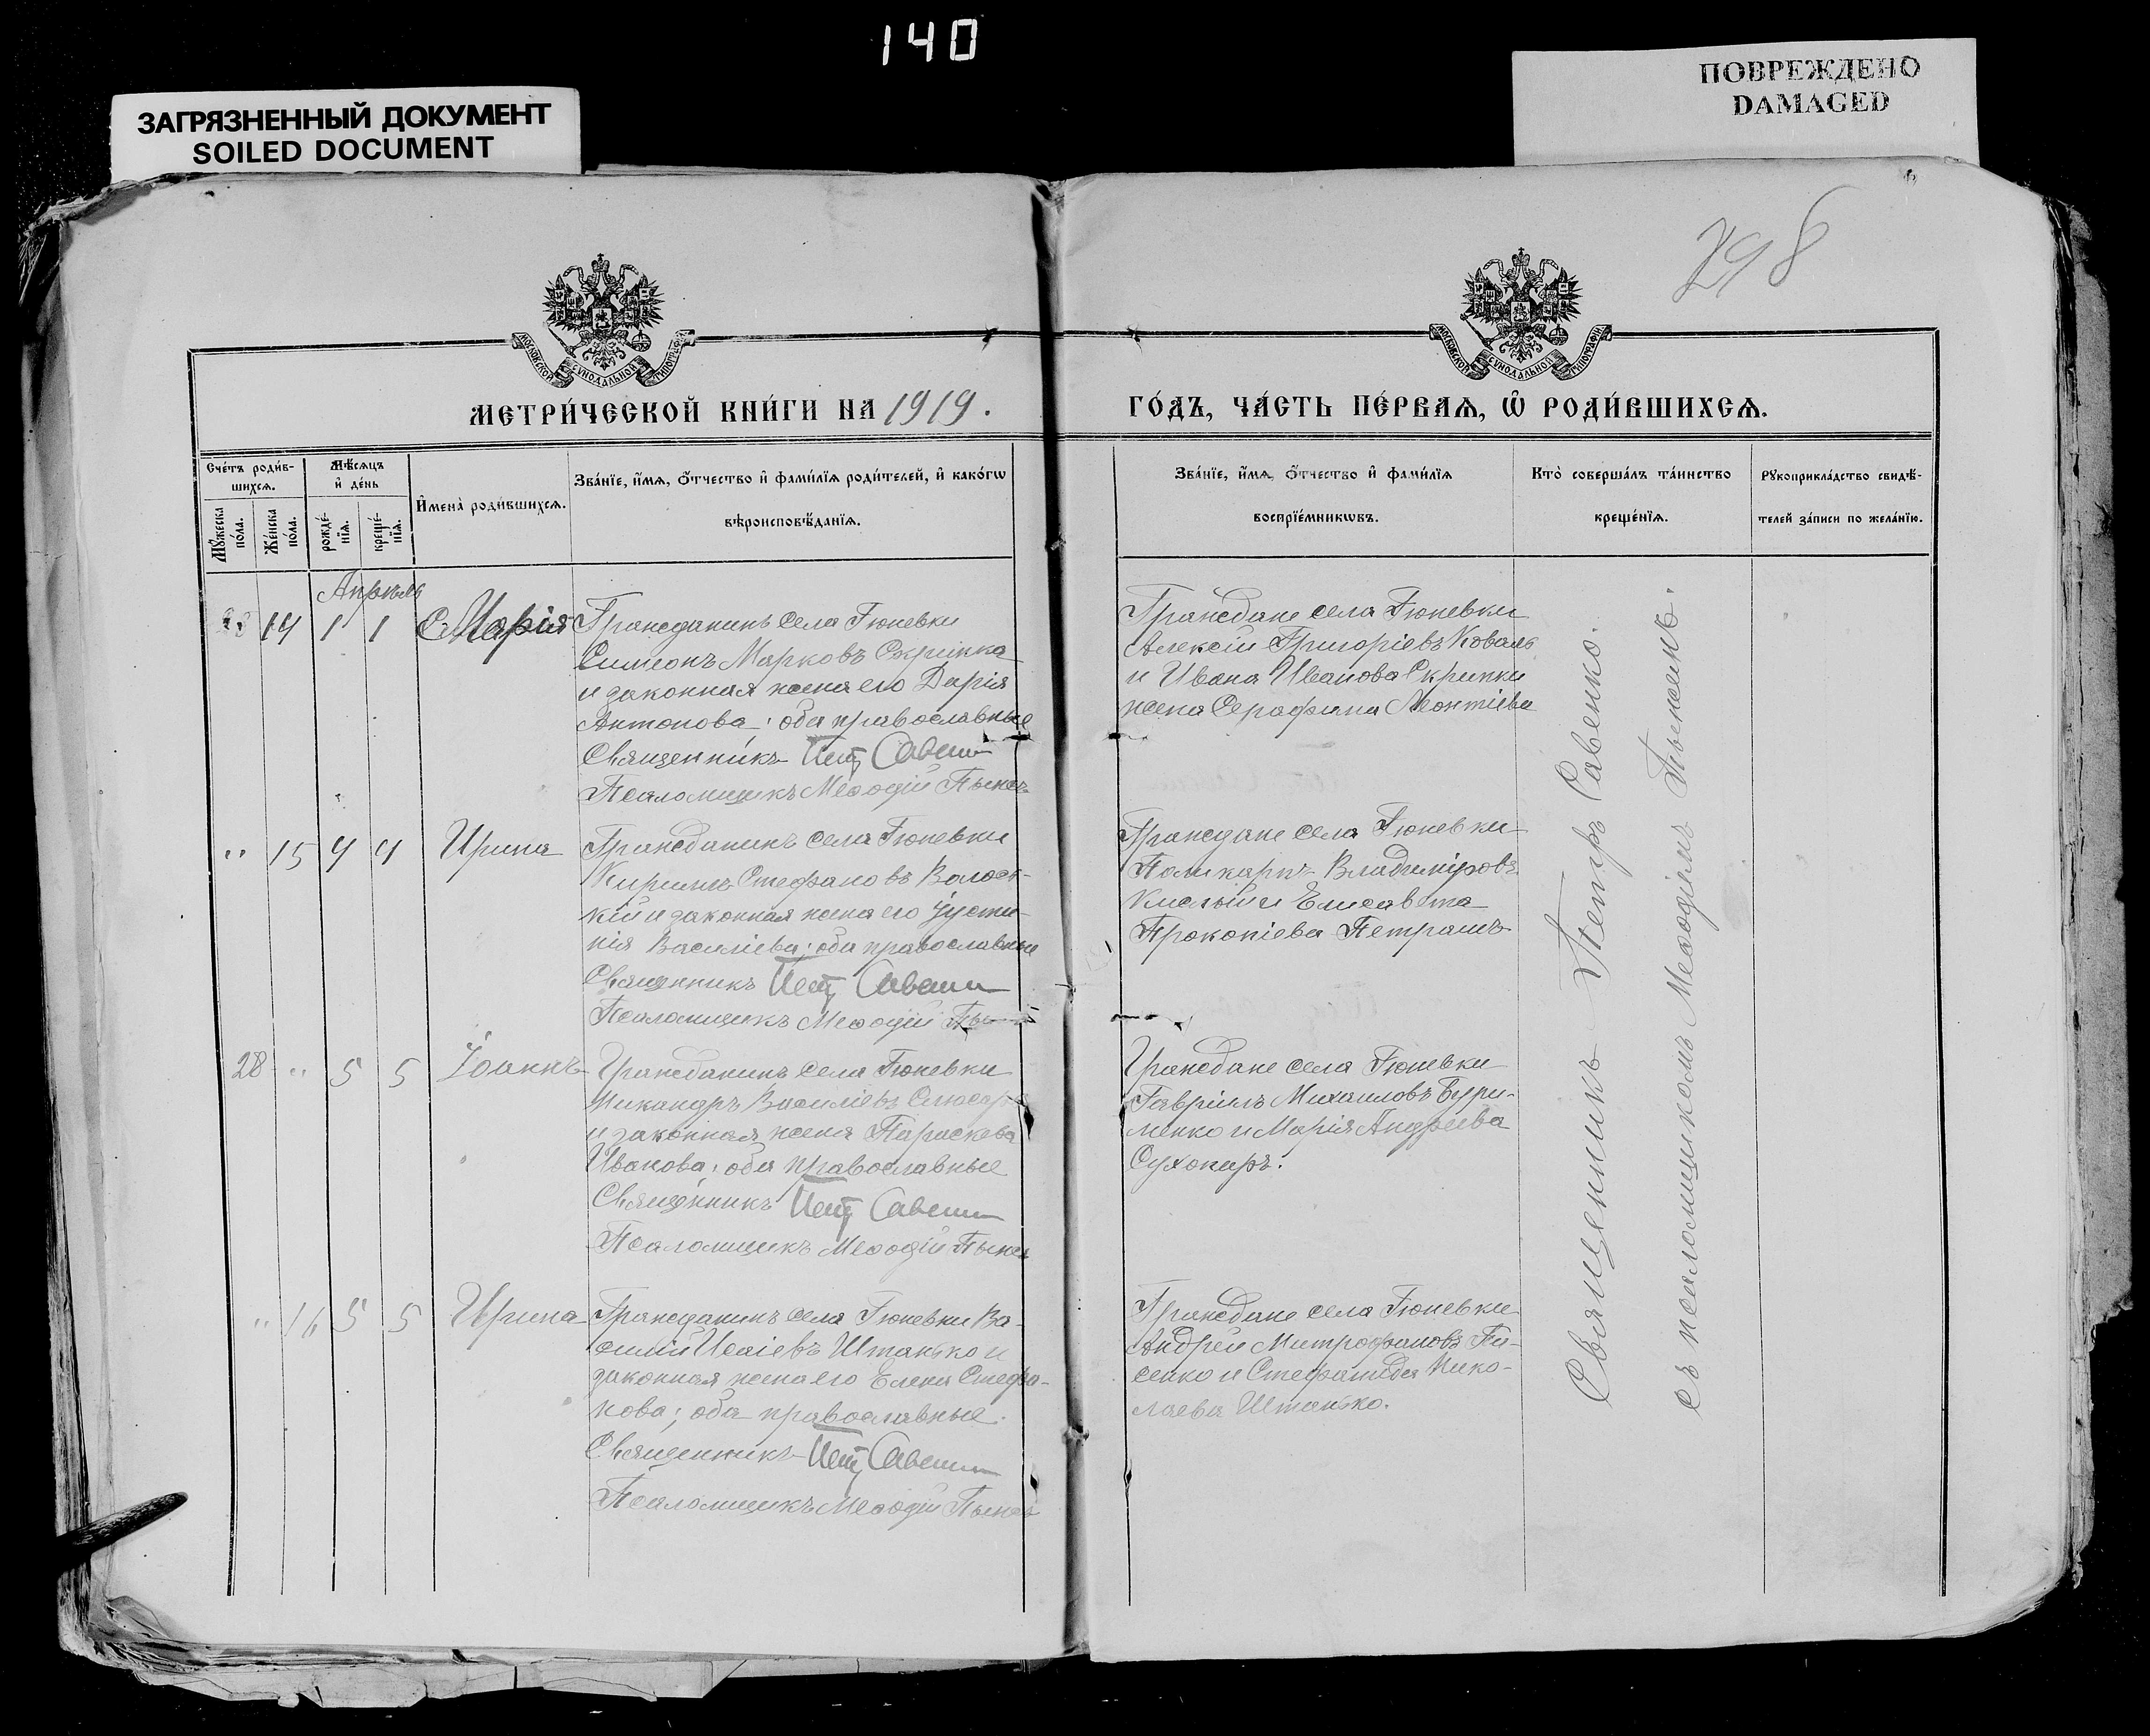 140
ЗАГРЯЗНЕННЫЙ ДОКУМЕНТ
SOILED DOCUMENT
ПОВРЕЖДЕНО
DAMAGED
298
МОСКОВСКОЙ СѴНОДАЛЬНОЙ ТИПОГРАФІИ
МОСКОВСКОЙ СѴНОДАЛЬНОЙ ТИПОГРАФІИ
МЕТРИ́ЧЕСКОЙ КНИ́ГИ НА 1919.
ГО́ДЪ, ЧА́СТЬ ПЕ́РВАѦ, Ѽ РОДИ́ВШИХСѦ.
Сче́тъ роди́в-
шихсѧ.
Мꙋ́жеска
по́ла.
Же́нска
по́ла.
Мѣ́сѧцъ
и҆ де́нь
рожде́-
нїѧ.
креще́-
нїѧ.
И҆мена̀ роди́вшихсѧ.
Зва́нїе, и҆́мѧ, ѻ҆́тчество и҆ фами́лїѧ роди́телей, и҆ како́гѡ
вѣроисповѣ́данїѧ.
Зва́нїе, и҆́мѧ, ѻ҆́тчество и҆ фами́лїѧ
воспрїе́мникѡвъ.
Кто̀ соверша́лъ та́инство
креще́нїѧ.
Рꙋкоприкла́дство свидѣ́-
телей за́писи по жела́нїю.
Апрѣль
14 1 1 Марія
Гражданинъ села Гюневки
Симеонъ Марковъ Скрипка
и законная жена его Дарія
Антонова; оба православные
Священникъ Петръ Савенко
Псаломщикъ Меѳодій
Граждане села Гюневки
Алексій Григоріевъ Коваль
и Ивана Иванова Скрипки
жена Серафима Леонтіева
" 15 4 4 Ирина
Гражданинъ села Гюневки
Кириллъ Стефановъ Волос-
кій и законная жена его Іусти-
нія Василіева; оба православные
Священникъ Петръ Савенко
Псаломщикъ Меѳодій
Граждане села Гюневки
Поликарпъ Владиміровъ
и Елисавета
Прокопіева Петрашъ
28 " 5 5 Іоаннъ
Гражданинъ села Гюневки
Никандръ Василіевъ
и законная жена Параскева
Иванова; оба православные
Священникъ Петръ Савенко
Псаломщикъ Меѳодій
Граждане села Гюневки
Гавріилъ Михаиловъ Бури-
менко и Марія Андреева
Сухопаръ.
" 16 5 5 Ирина
Гражданинъ села Гюневки Ва-
силій Исаіевъ Штанько и
законная жена его Елена Стефа-
нова; оба православные.
Священникъ Петръ Савенко
Псаломщикъ Меѳодій
Граждане села Гюневки
Андрей Митрофановъ Пи-
сенко и Стефанида Нико-
лаева Штанько.
Священникъ Петръ Савенко.
съ псаломщикомъ Меѳодіемъ